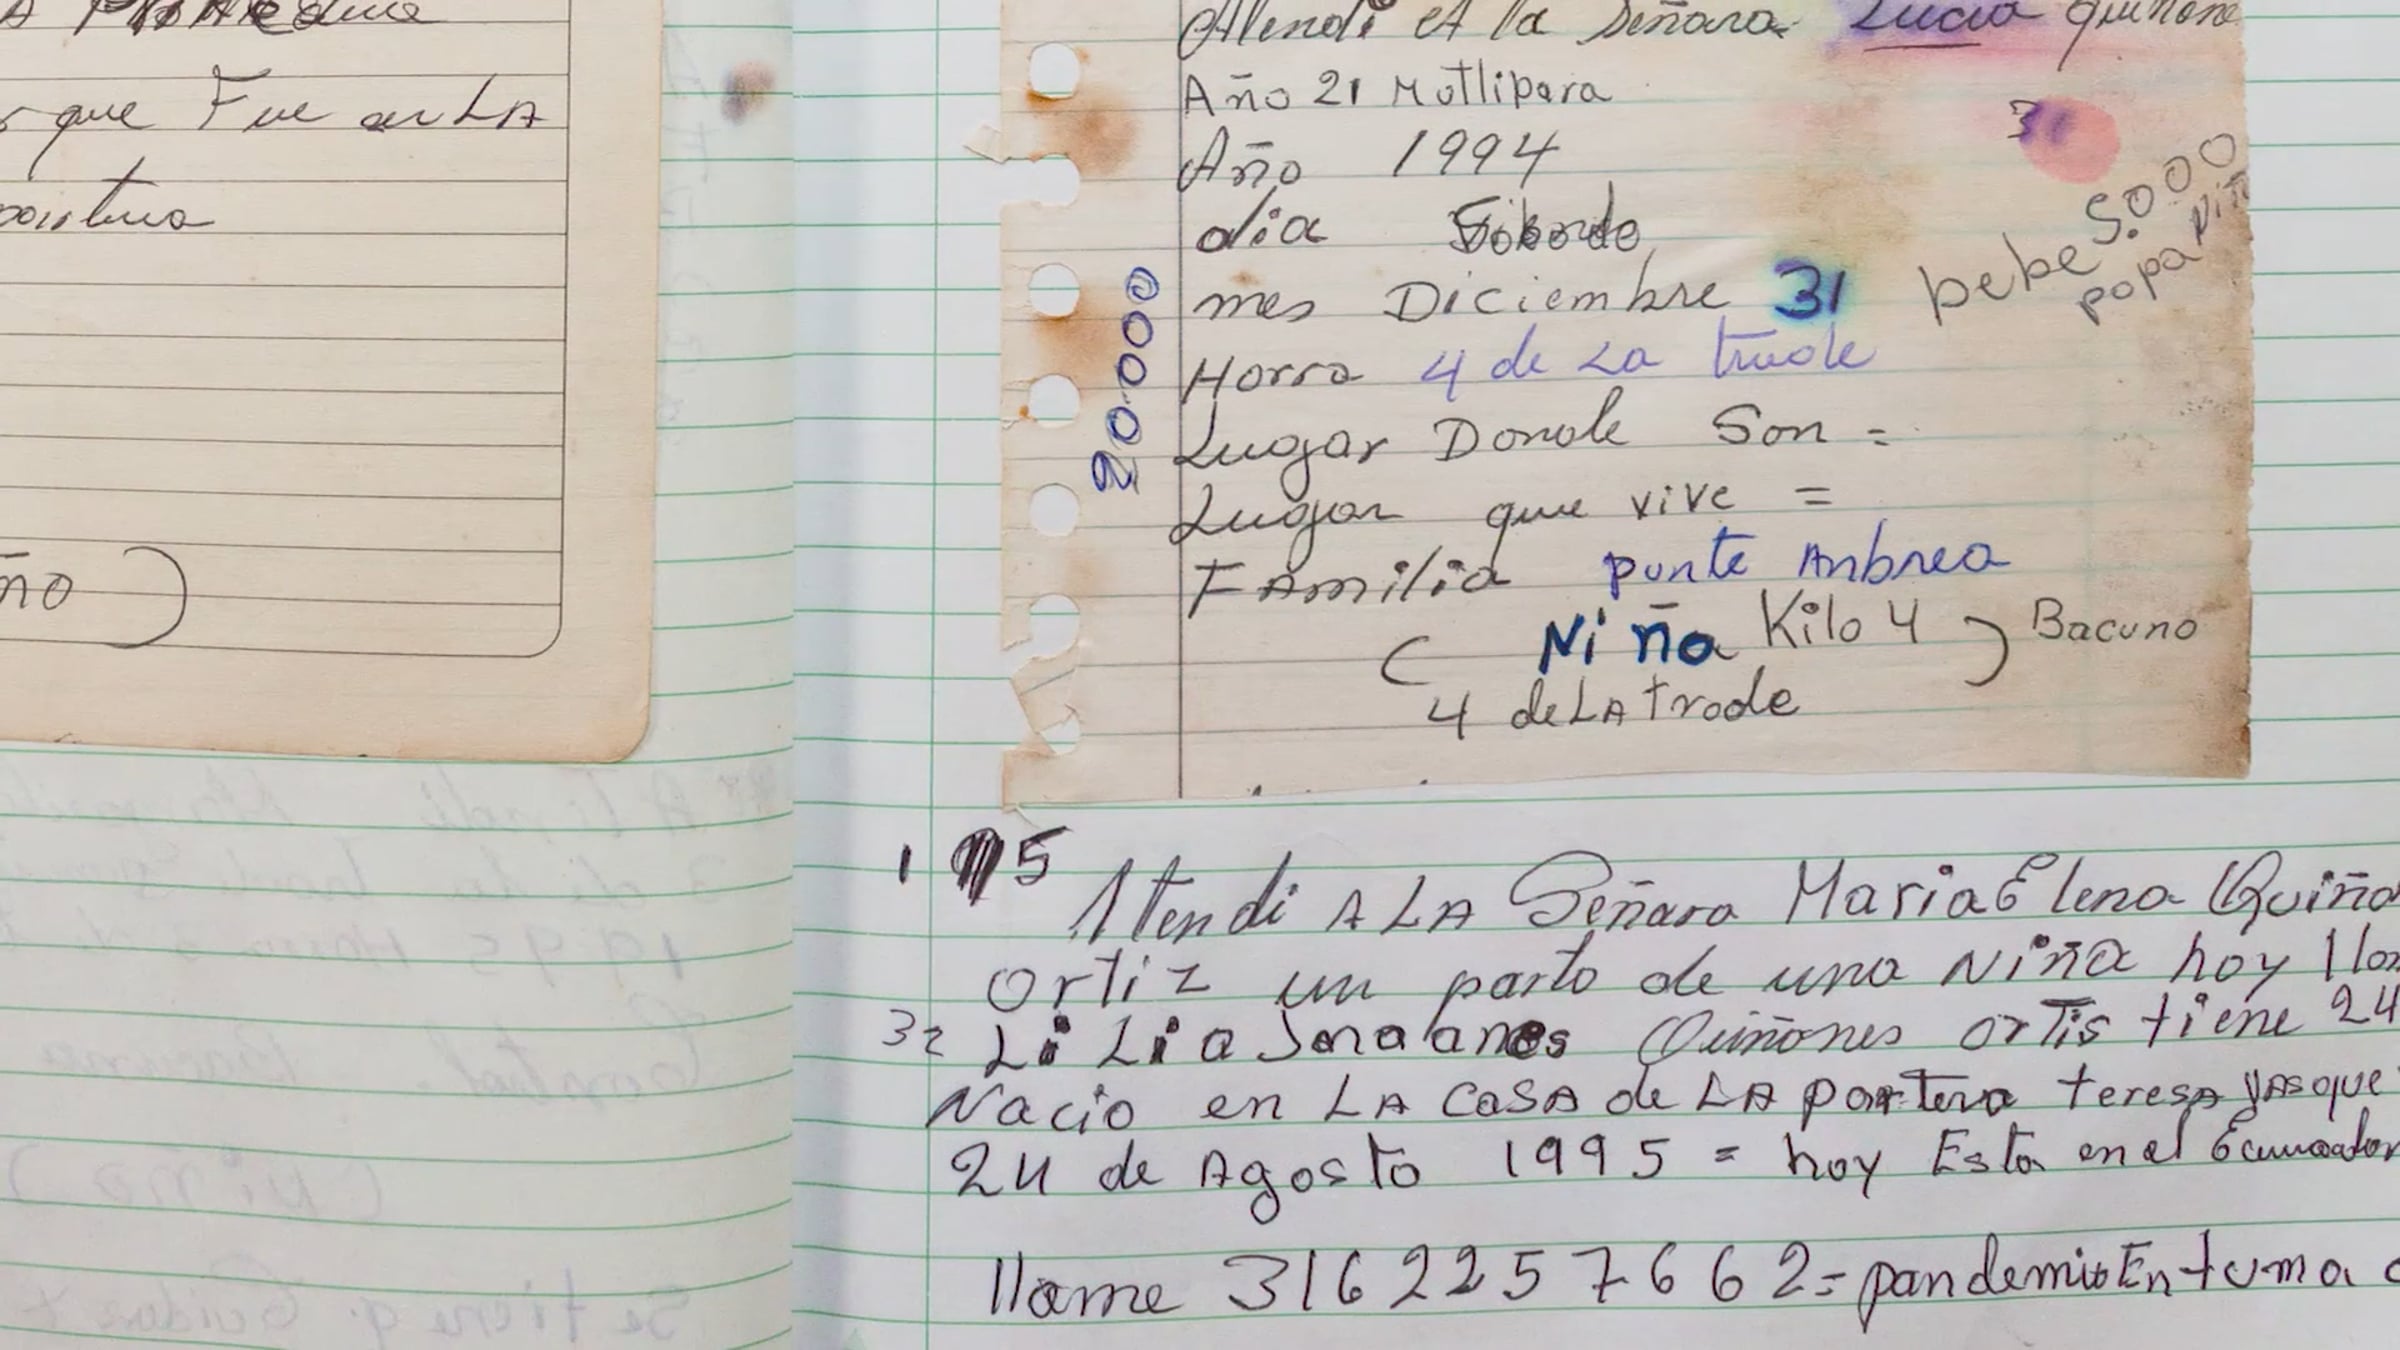 que Fue en LA
ño )
Atendi A la Señora Lucia Quiñone
Año 21 Mutlipara
Año 1994
31
dia
mes Diciembre 31
bebe 5.000
popa Niñ
Horra 4 de La trude
20.000
Lugar Donde Son =
Lugar que vive =
FAmilia punte Anbrea
( Niña Kilo 4 ) Bacuno
4 de LA trode
1 5
Atendi A LA Señara Maria Elena Quiño
Ortiz un parto de una Niña hoy lla
32 LiLia Quiñones ortis tiene 24
Nacio en LA CASA de LA partera teresa VASque
24 de Agosto 1995 = hoy Esta en el Ecuador
llame 316 225 7662 = pandemia En tuma